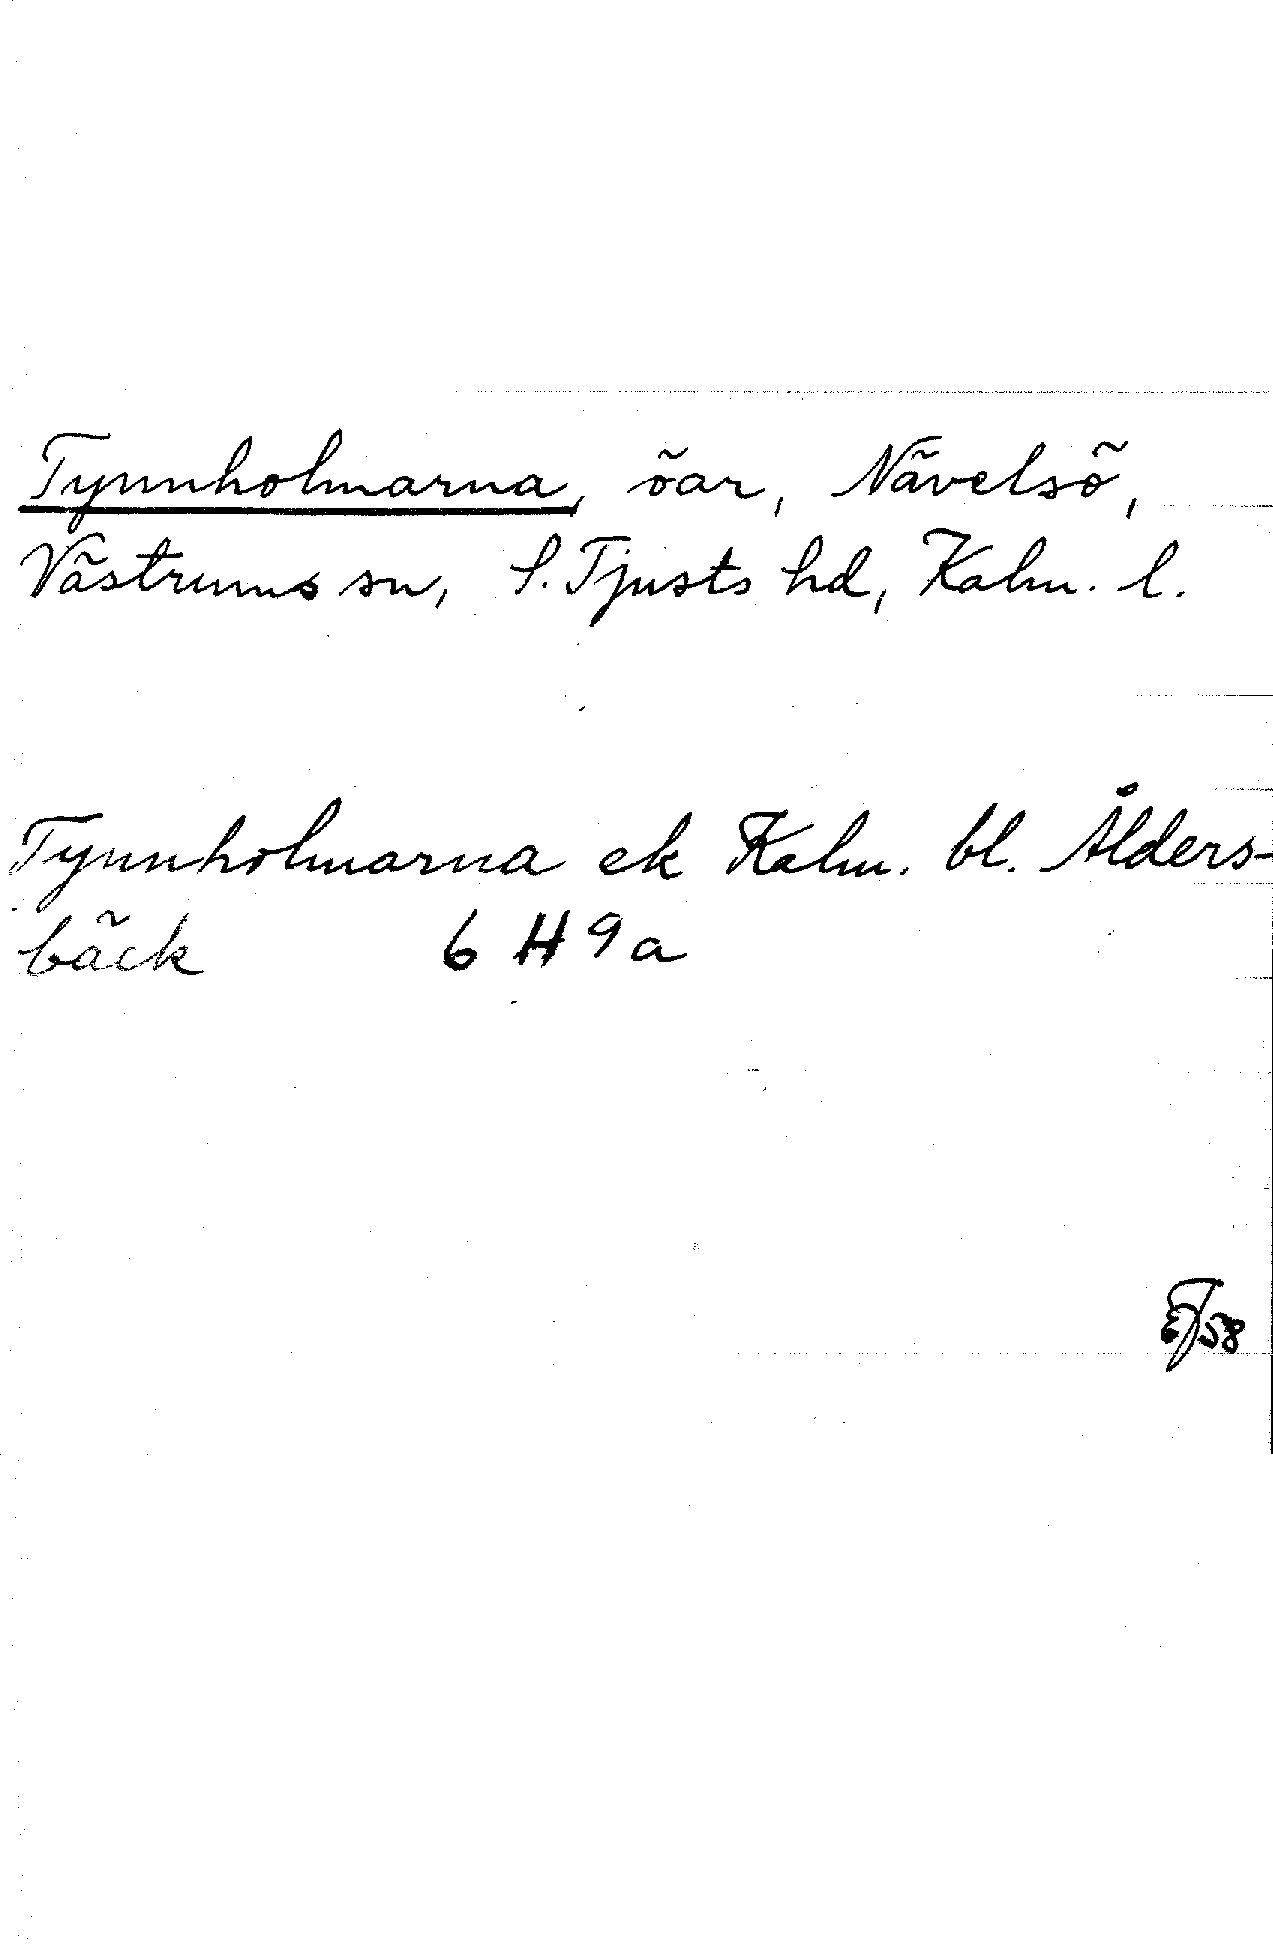 Tynnholmarna, öar, Nävelsö,
Västrums sn, S. Tjusts hd, Kalm. l.
Tynnholmarna ek Kalm. bl. Ålders-
bäck 6 H 9 a
58